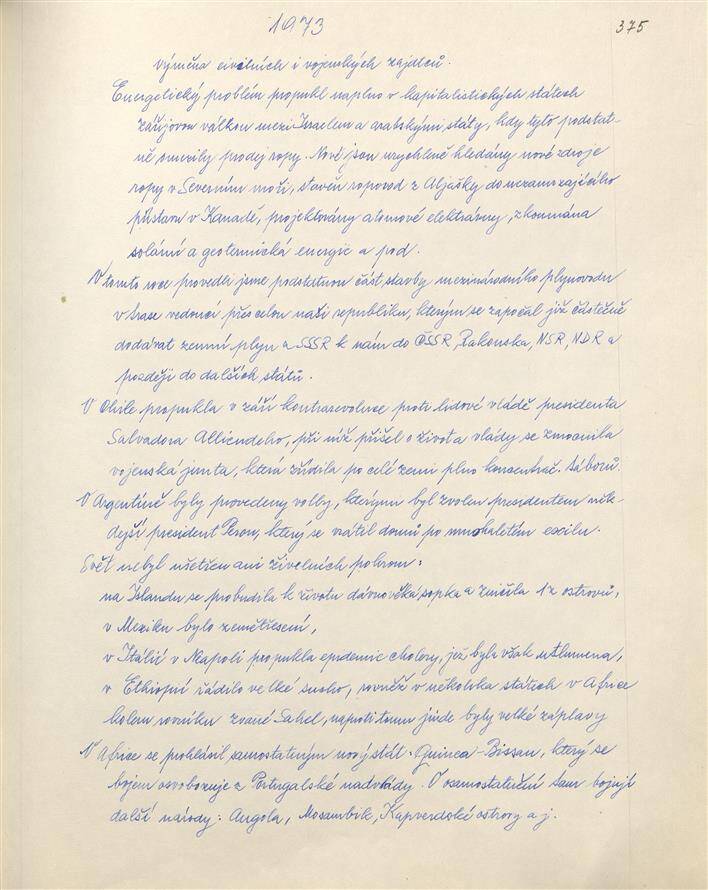 1973
375
výměna civilních i vojenských zajdců.
Energetický problém propukl naplno v kapitalistických státech
zářijovou válkou mezi Israelem a arabskými státy, kdy tyto podstat-
ně smerily prodej ropy. Nově jsou urychleně hledány nové zdroje
ropy v Severním moři, stavěn ropovod z Aljašky do nezamrzajícího
přístavu v Kanadě, projektovány atomové elektrárny, zkoumána
solární a geotermická energie a pod.
V tomto roce provedli jsme podstatnou část stavby mezinárodního plynovodu
v trase vedoucí přes celou naši republiku, kterým se započal již částečně
dodávat zemní plyn z SSSR k nám do ČSSR, Rakouska, NSR, NDR a
později do dalších států.
V Chile propukla v září kontrarevoluce proti lidové vládě presidenta
Salvadora Alliendeho, při níž přišel o život a vlády se zmocnila
vojenská junta, která zřídila po celé zemi plno koncentrač. táborů.
V Argentině byly provedeny volby, kterými byl zvolen presidentem něk-
dejší president Peron, který se vrátil domů po mnohaletém exilu.
Svět nebyl ušetřen ani živelních pohrom:
na Islandu se probudila k životu dávnověká sopka a zničila 1 z ostrovů,
v Mexiku bylo zemětřesení,
v Itálii v Neapoli propukla epidemie cholery, jež byla však utlumena,
v Ethiopii řádilo velké sucho, rovněž v několika státech v Africe
kolem rovníku zvané Sahel, napoti tomu jinde byly velké záplavy
V Africe se prohlásil samostatným nový stát - Guinea-Bissau, který se
bojem osvobozuje z Portugalské nadvlády. O osamostatnění tam bojují
další národy: Angola, Mosambik, Kapverdské ostrovy a j.